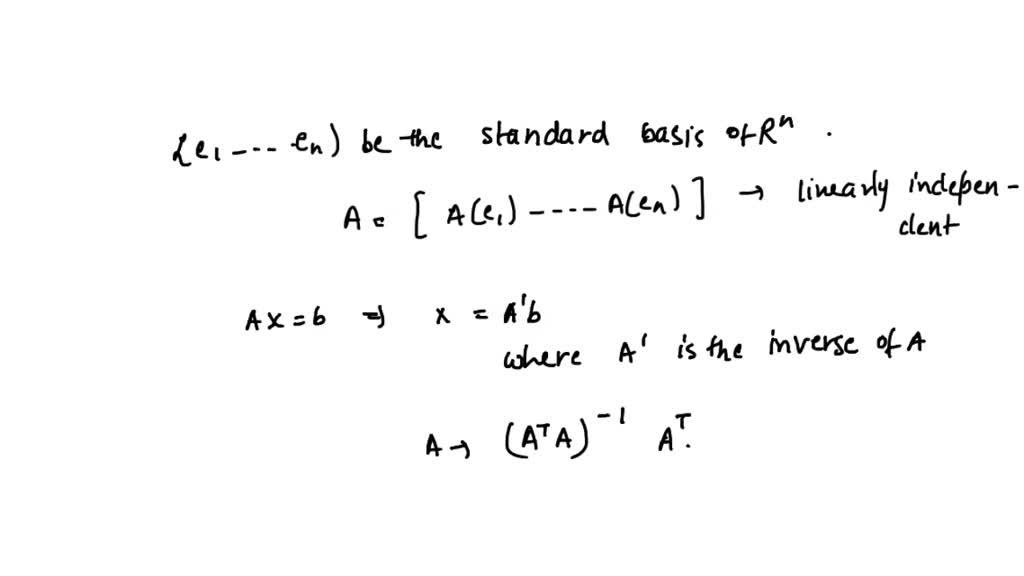 {e₁ --- eₙ) be the standard basis of Rⁿ .
A = [ A(e₁) ---- A(eₙ) ] → linearly indepen-
dent
Ax = b ⇒ x = A'b
where A' is the inverse of A
A → (AᵀA)⁻¹ Aᵀ.